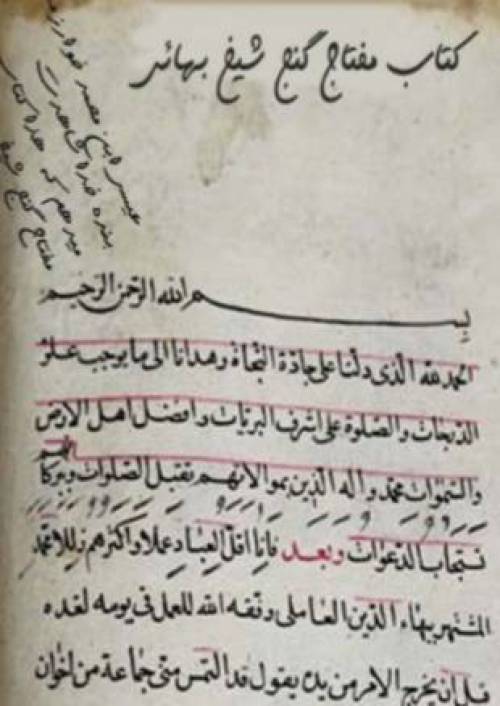 کتاب مفتاح گنج شیخ بهائی
بنده خدا شهادت
میدهم که هذا کتاب
مفتاح گنج شیخ
بسم الله الرحمن الرحيم
الحمد لله الذی دلنا على جادة النجاة وهدانا الى ما یوجب علو
الدرجات والصلوة على اشرف البریات وافضل اهل الارض
والسموات محمد وآله الذین بموالاتهم تقبل الصلوات وببركاتهم
تستجاب الدعوات وبعد فان اقل العباد عملا واكثرهم زللا محمد
المشتهر ببهاء الدین العاملی وفقه الله للعمل فی یومه لغده
قبل ان یخرج الامر من یده یقول قد التمس منی جماعة من اخوان